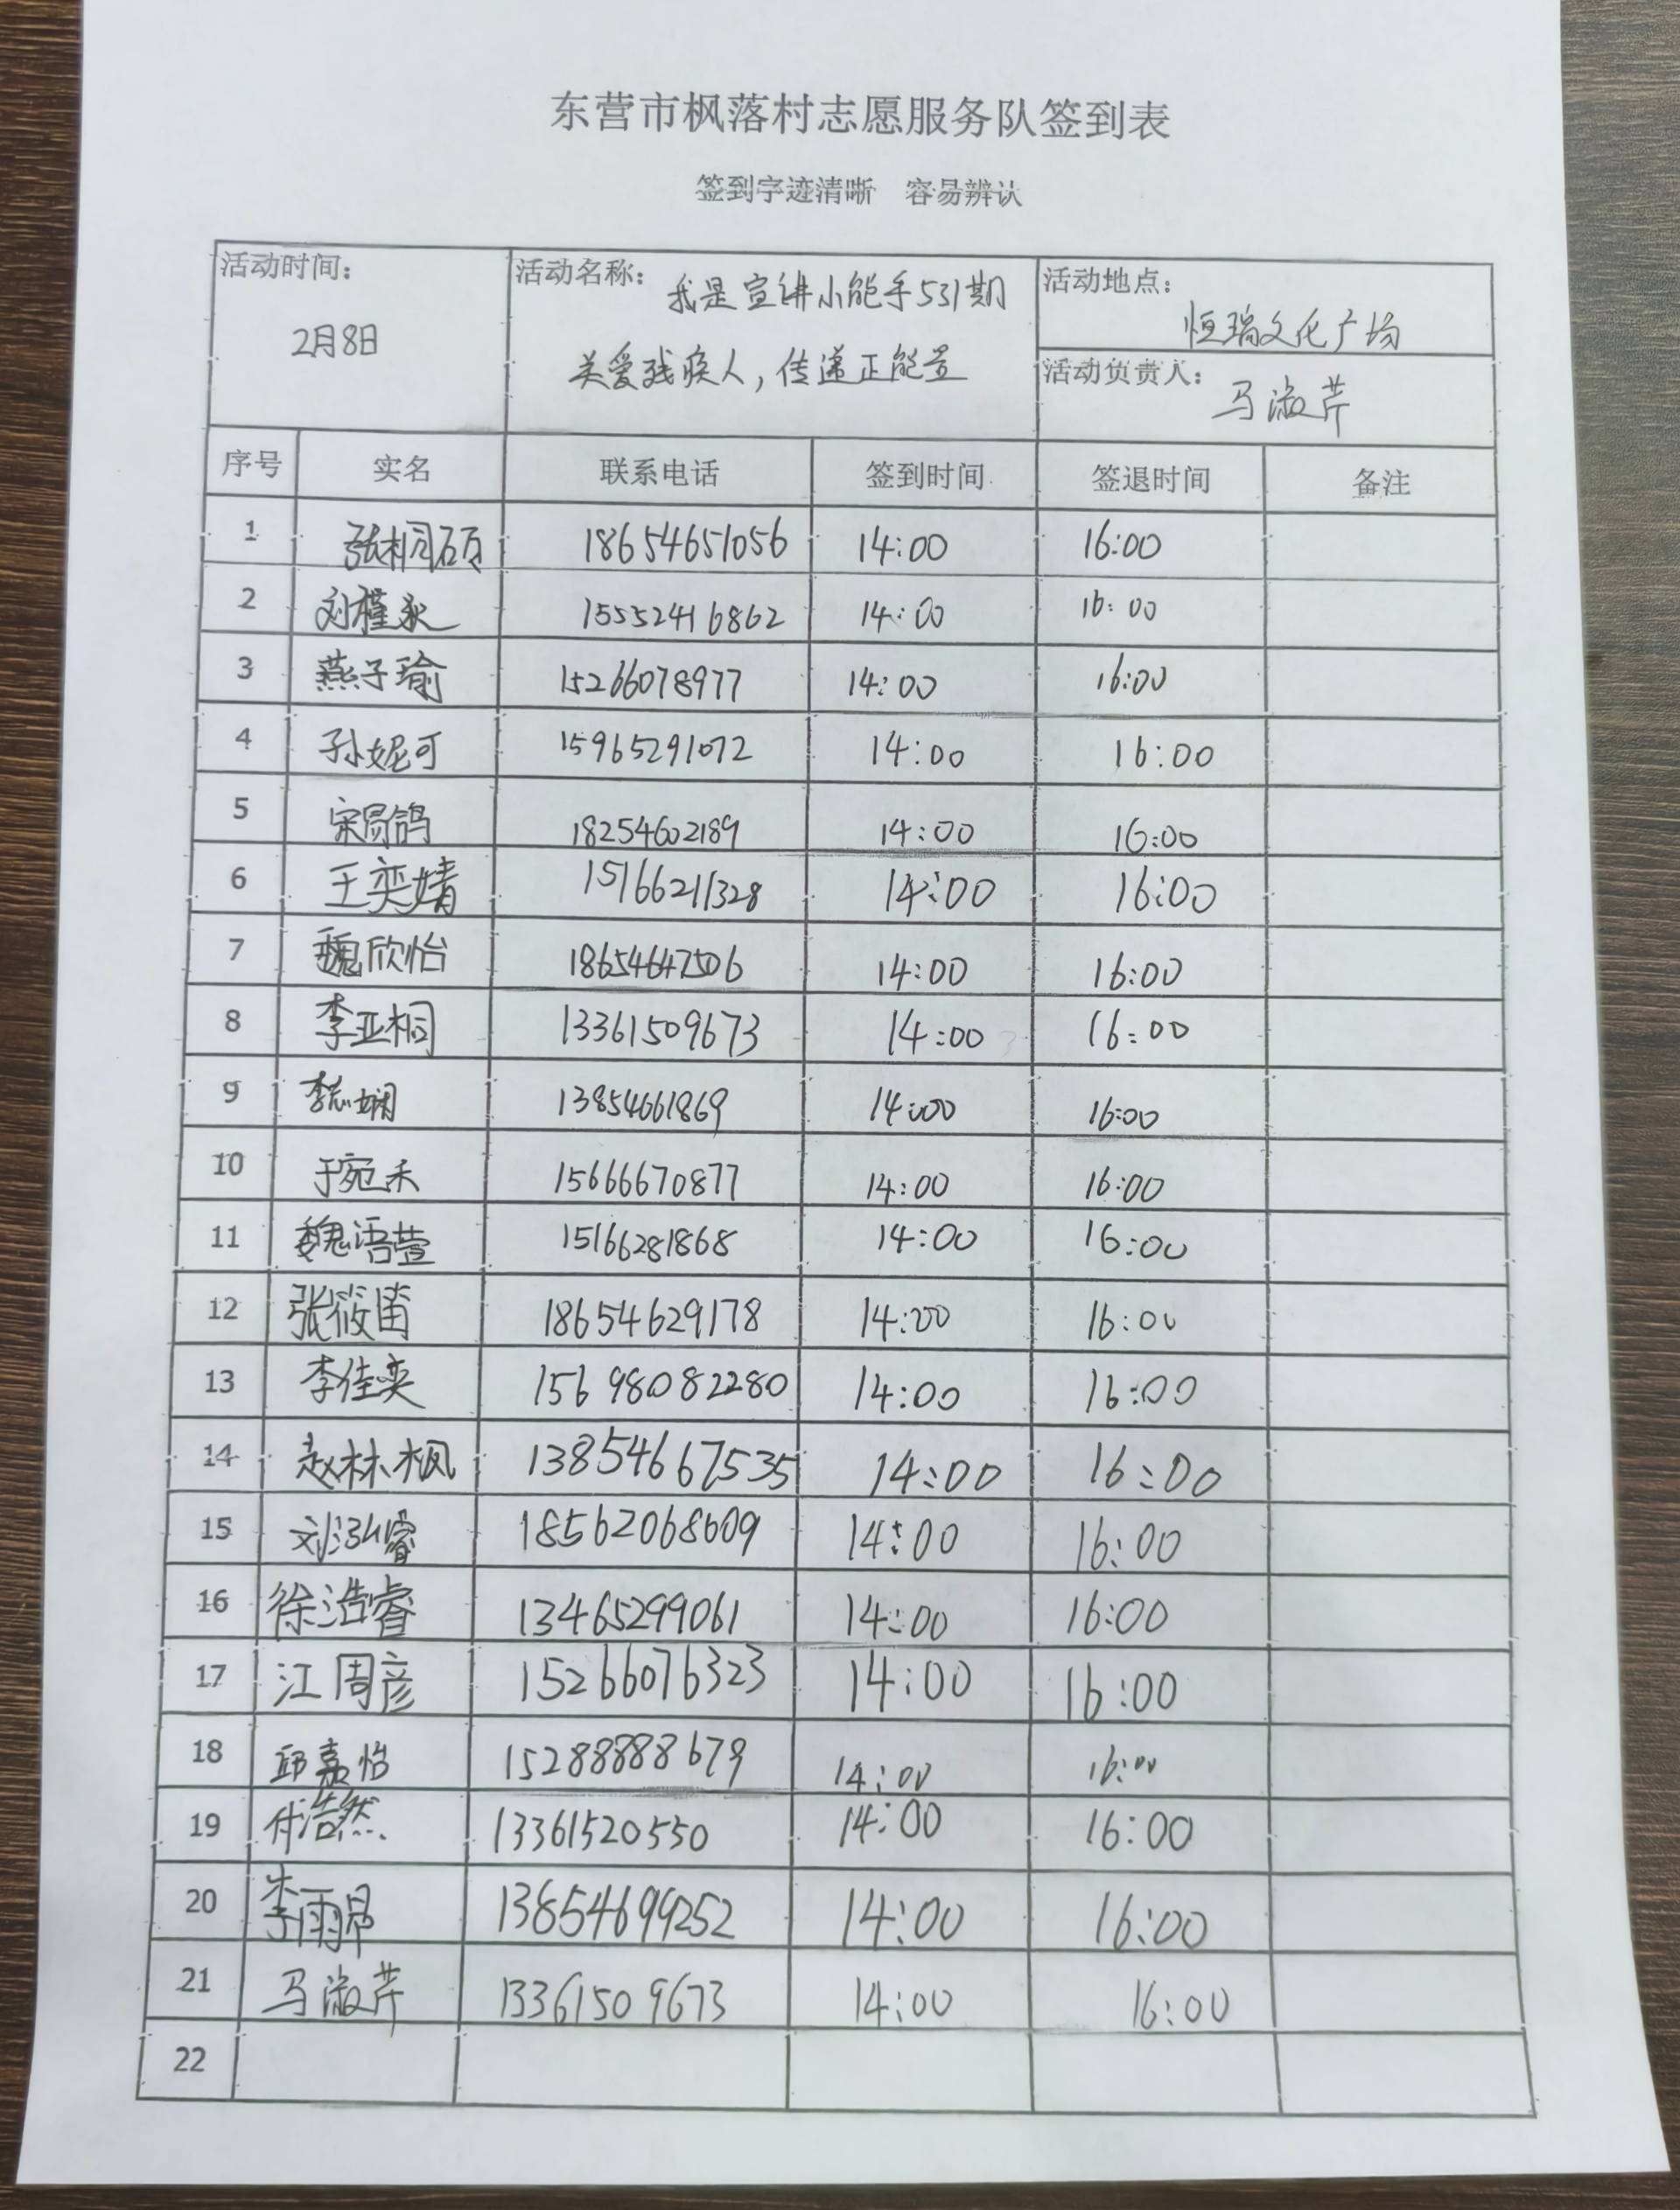 东营市枫落村志愿服务队签到表
签到字迹清晰 容易辨认
活动时间：
2月8日
活动名称： 我是宣讲小能手531期
关爱残疾人，传递正能量
活动地点：
恒瑞文化广场
活动负责人：
马淑芹
序号 实名 联系电话 签到时间 签退时间 备注
1 张桐硕 18654651056 14:00 16:00
2 刘槿 15552416862 14:00 16:00
3 燕子瑜 15266078977 14:00 16:00
4 孙妮可 15965291072 14:00 16:00
5 宋易鸽 18254602189 14:00 16:00
6 王奕婧 15166211328 14:00 16:00
7 魏欣怡 18654647506 14:00 16:00
8 李亚桐 13361509673 14:00 16:00
9 李 娴 13854661869 14:00 16:00
10 于宛禾 15666670877 14:00 16:00
11 魏语萱 15166281868 14:00 16:00
12 张筱笛 18654629178 14:00 16:00
13 李佳奕 15698082280 14:00 16:00
14 赵林枫 13854667535 14:00 16:00
15 刘泓睿 18562068609 14:00 16:00
16 徐浩睿 13465299061 14:00 16:00
17 江周彦 15266076323 14:00 16:00
18 邱嘉怡 15288888679 14:00 16:00
19 付浩然 13361520550 14:00 16:00
20 李雨昂 13854699252 14:00 16:00
21 马淑芹 13361509673 14:00 16:00
22